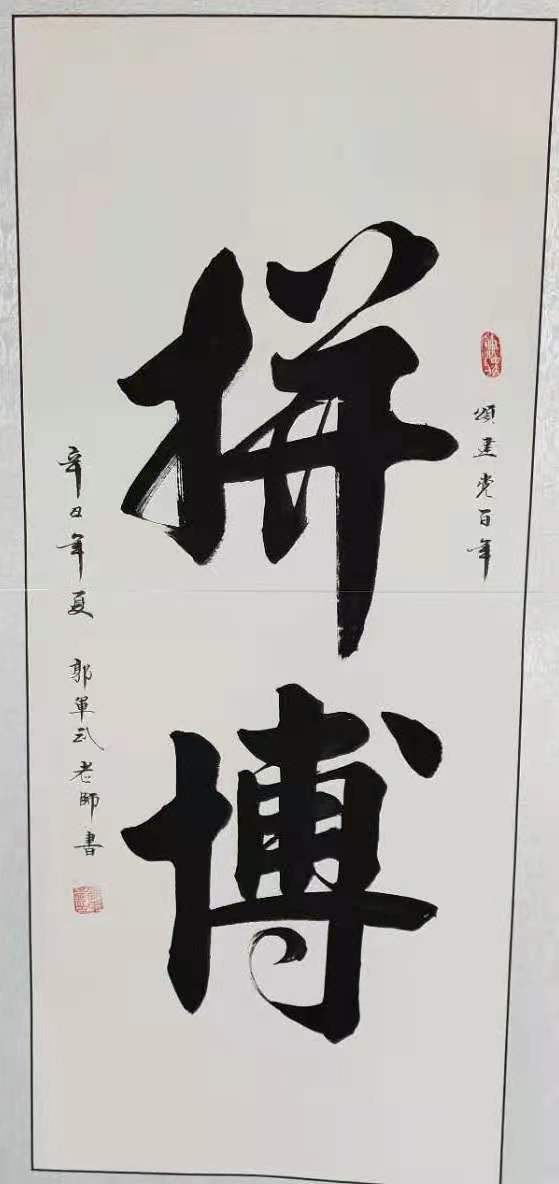 頌建党百年
拼搏
辛丑年夏 郭軍武老師書